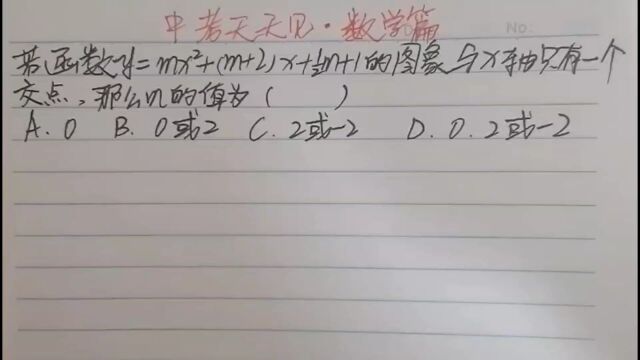 中考天天见·数学篇
No:
若函数y=mx²+(m+2)x+½m+1的图象与x轴只有一个
交点,那么m的值为( )
A.0 B.0或2 C.2或-2 D.0.2或-2